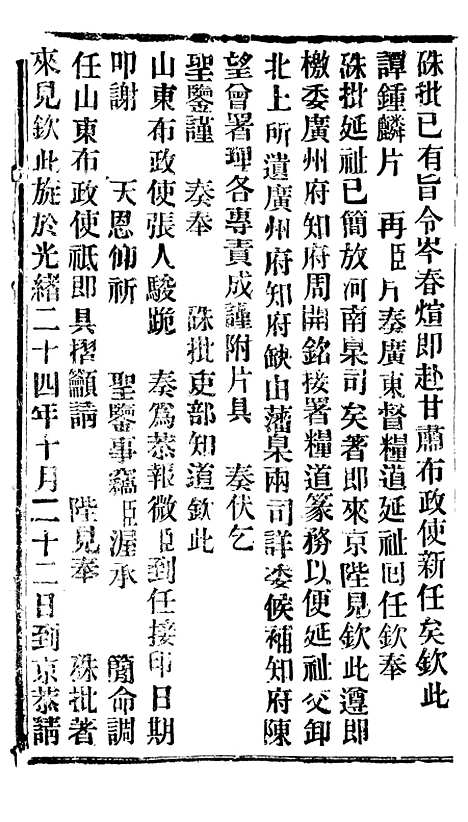 硃批已有旨令岑春煊即赴甘肅布政使新任矣欽此
譚鍾麟片 再臣片奏廣東督糧道延祉回任欽奉
硃批延祉已簡放河南臬司矣著即來京陛見欽此遵即
檄委廣州府知府周開銘接署糧道篆務以便延祉交卸
北上所遺廣州府知府缺由藩臬兩司詳委候補知府陳
望曾署理各專責成謹附片具 奏伏乞
聖鑒謹 奏奉 硃批吏部知道欽此
山東布政使張人駿跪 奏爲恭報微臣到任接印日期
叩謝 天恩仰祈 聖鑒事竊臣渥承 簡命調
任山東布政使祇即具摺籲請 陛見奉 硃批著
來見欽此旋於光緒二十四年十月二十二日到京恭請